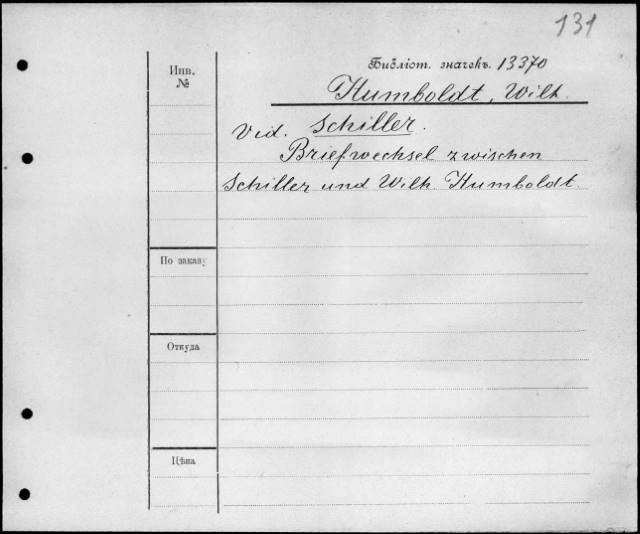 131
Библіот. значекъ. 13370
Инв.
№
Humboldt, Wilh.
Vid. Schiller.
Briefwechsel zwischen
Schiller und Wilh. Humboldt.
По заказу
Откуда
Цѣна